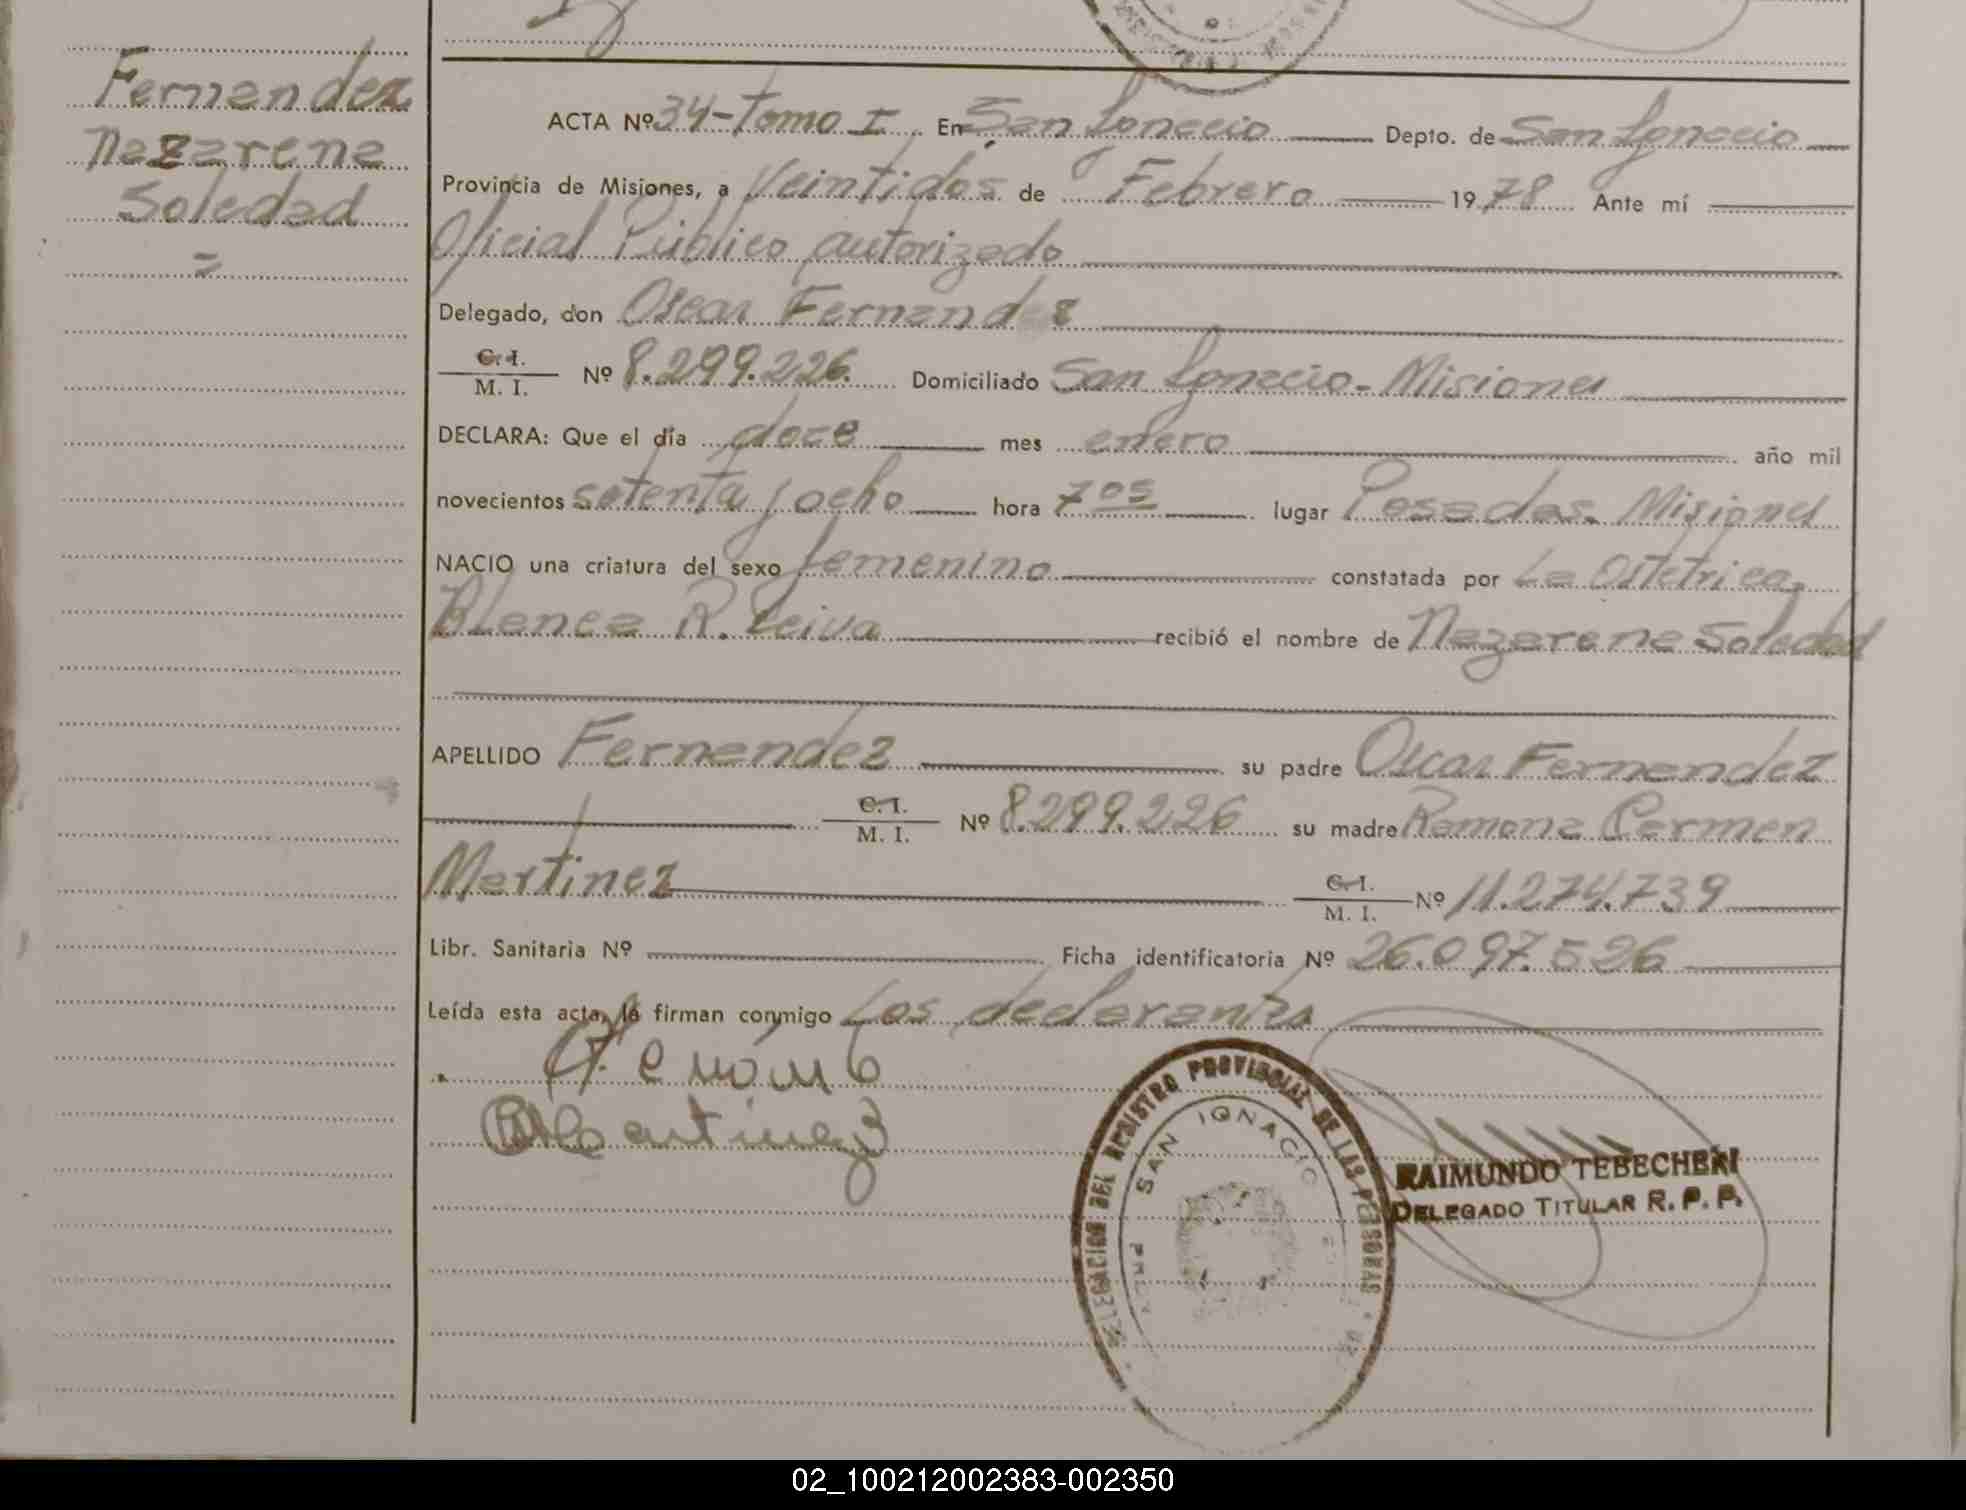 Fernandez
Nazarena
Soledad
=
ACTA Nº 34-Tomo I En San Ignacio Depto. de San Ignacio
Provincia de Misiones, a Veintidos de Febrero 1978 Ante mí
Oficial Público autorizado
Delegado, don Oscar Fernandez
C. I.
M. I. Nº 8.299.226. Domiciliado San Ignacio - Misiones
DECLARA: Que el día doce mes enero año mil
novecientos setenta y ocho hora 7 05 lugar Posadas. Misiones
NACIO una criatura del sexo femenino constatada por La Ostetrica,
Blanca R. Leiva recibió el nombre de Nazarena Soledad
APELLIDO Fernandez su padre Oscar Fernandez
C. I.
M. I. Nº 8.299.226 su madre Ramona Carmen
Martinez C. I.
M. I. Nº 11.274.739
Libr. Sanitaria Nº Ficha identificatoria Nº 26.097.526
Leída esta acta, la firman conmigo Los declarantes
Martinez
DELEGACION DEL REGISTRO PROVINCIAL DE LAS PERSONAS
SAN IGNACIO
RAIMUNDO TEBECHERI
DELEGADO TITULAR R. P. P.
02_100212002383-002350